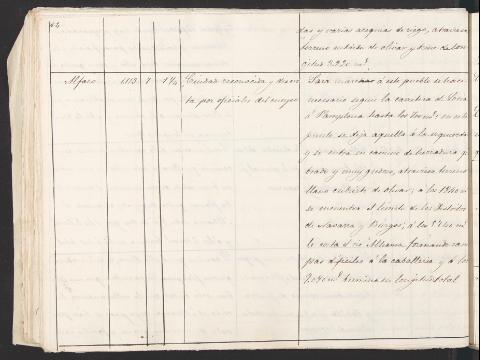 62
das y varias acequias de riego, atraviesa
terreno cubierto de olivar y tiene de lon
Alfaro 6113 7 1¼ Ciudad reconocida y descri
ta por oficiales del cuerpo
Para marchar á este pueblo es
necesario seguir la carretera de Soria
á Pamplona hasta los
puente se deja aquella á la izquierda
y se entra en camino de herradura
y muy atraviesa terreno
llano cubierto de olivar; a los 1340 m.s
se encuentra el limite de los Distritos
de Navarra y Burgos; á los
el rio Alhama formando
difíciles á la caballeria y á los
termina su longitud total